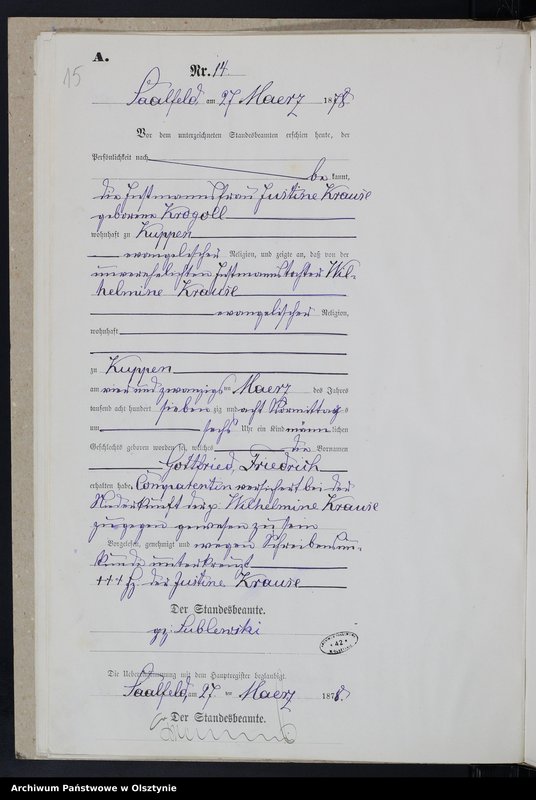 A.
15
Nr. 14.
Saalfeld am 27 Maerz 1878
Vor dem unterzeichneten Standesbeamten erschien heute, der
Persönlichkeit nach
be kannt,
die Instmannsfrau Justine Krause
geborene Krogoll
wohnhaft zu Kuppen
evangelischer Religion, und zeigte an, daß von der
unverehelichten Instmannstochter Wil-
helmine Krause
evangelischer Religion,
wohnhaft
zu Kuppen
am vier und zwanzigsten Maerz des Jahres
tausend acht hundert siebenzig und acht Vormittags
um sechs Uhr ein Kind männlichen
Geschlechts geboren worden sei, welches die Vornamen
Gottfried, Friedrich
erhalten habe. Comparentin versichert bei der
Niederkunft der p. Wilhelmine Krause
zugegen gewesen zu sein
Vorgelesen, genehmigt und wegen Schreibensun-
kunde unterkreuzt
+++ Hz. der Justine Krause
Der Standesbeamte.
gz: Sublewski
42
Die Uebereinstimmung mit dem Hauptregister beglaubigt.
Saalfeld, am 27 ten Maerz 1878.
Der Standesbeamte.
Archiwum Państwowe w Olsztynie